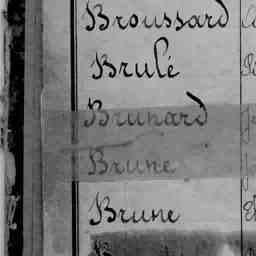 Broussard
Brulé
Brunard
Brune
Brune